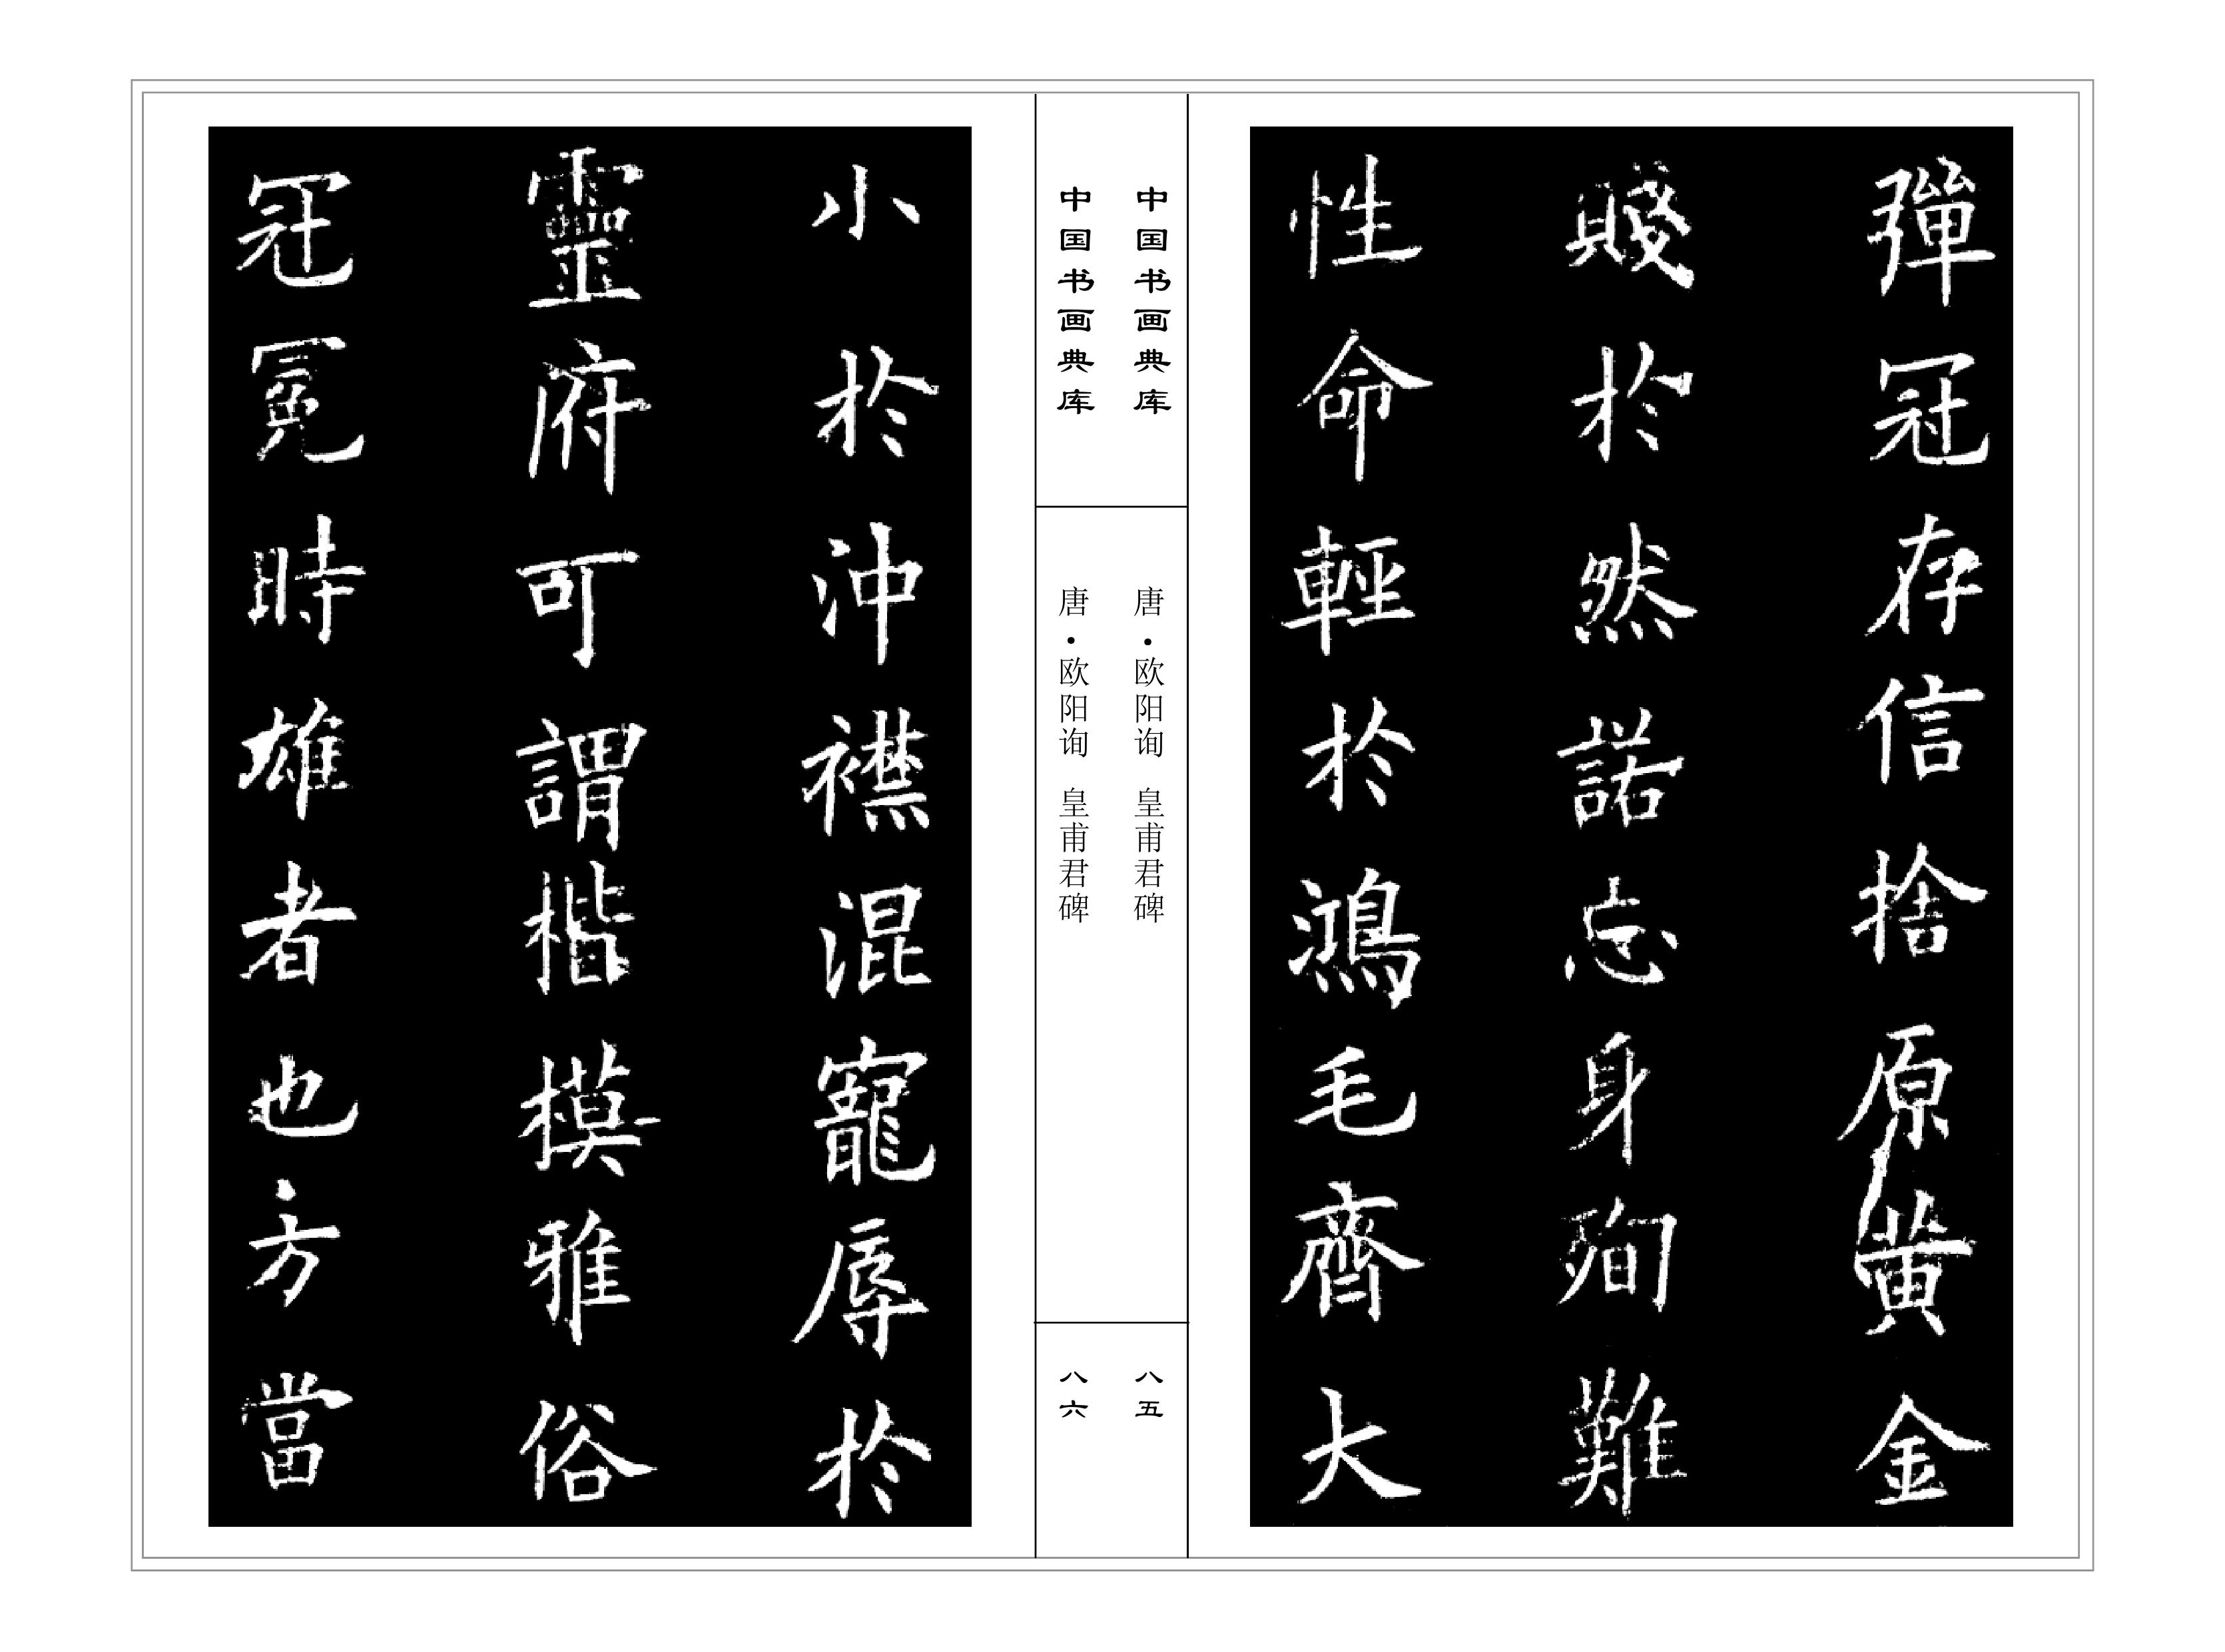 彈冠存信捨原黄金
賤於然諾忘身殉難
性命輕於鴻毛齊大
中国书画典库
唐·欧阳询 皇甫君碑
八五
中国书画典库
唐·欧阳询 皇甫君碑
八六
小於沖襟混寵辱於
靈府可謂楷模雅俗
冠冕時雄者也方當